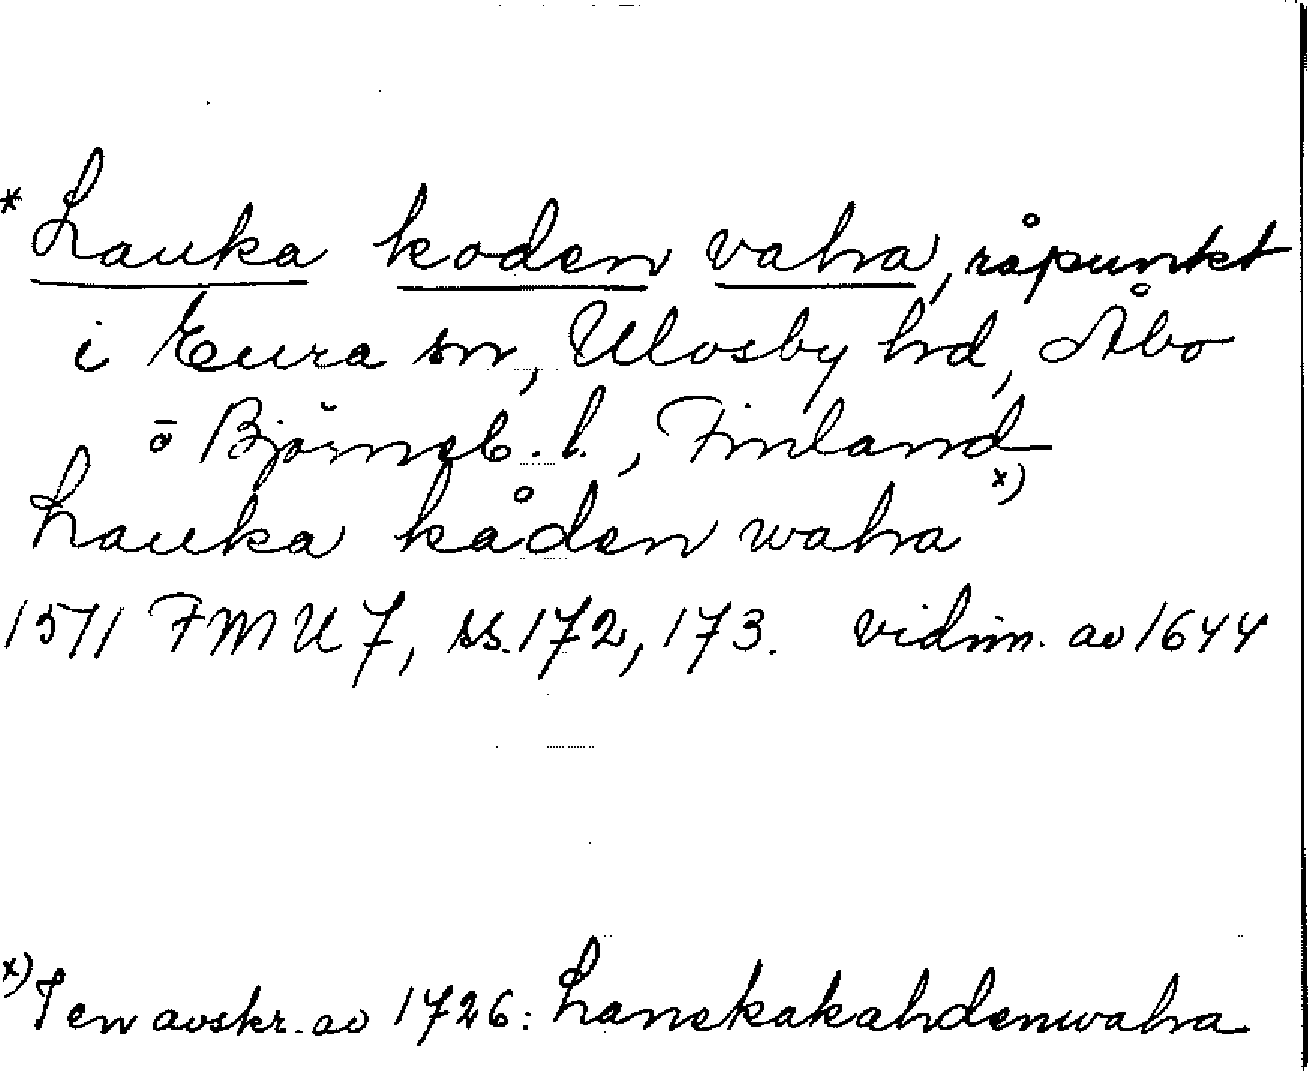 * Lauka koden vaha, råpunkt
i Eura sn, Ulvsby hd, Åbo
o Björneb. l., Finland
Lauka kåden waha x)
1571 FMU 7, ss. 172, 173. vidim. av 1644
x) I en avskr. av 1726: Lanekakahdenwaha